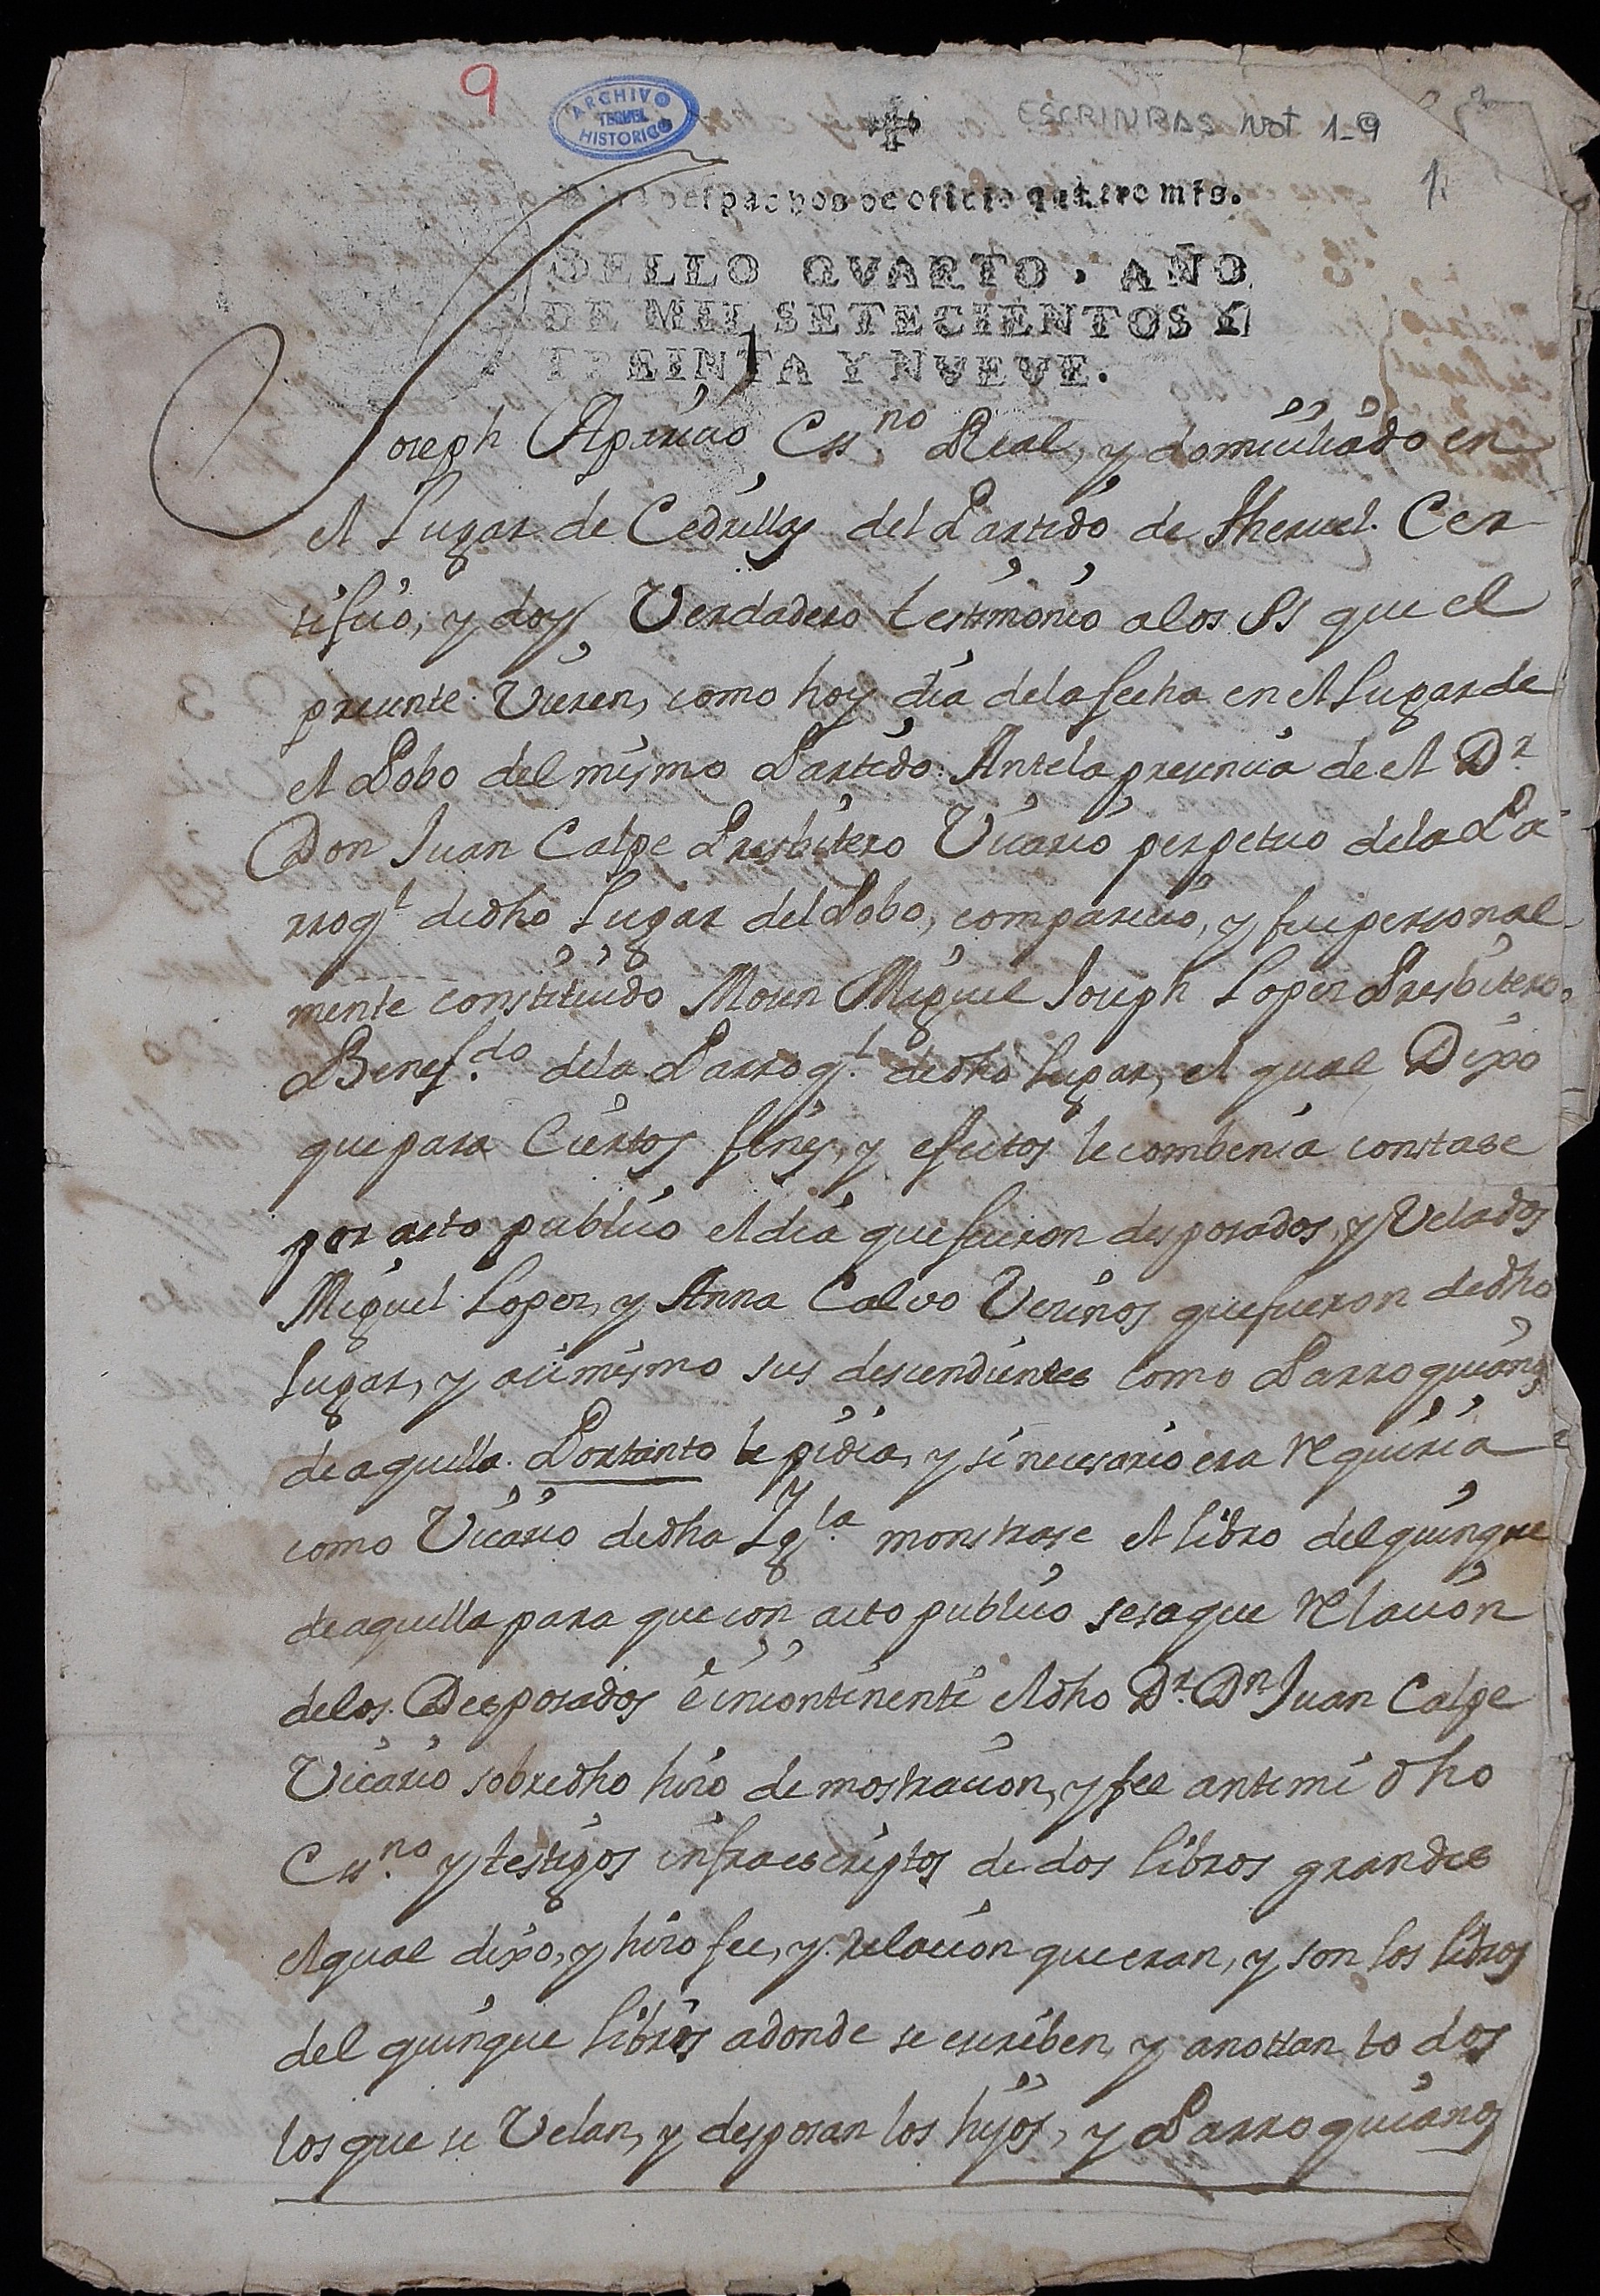 9
ARCHIVO
TERUEL
HISTORICO
ESCRINRAS Not 1-9
1
despachos de oficio quatro mrs.
SELLO QVARTO, AÑO
DE MIL SETECIENTOS Y
TREINTA Y NVEVE.
Joseph Aparicio Essno Real, y domiciliado en
el Lugar de Cedrillas del Partido de Theruel. Cer
tifico, y doy Verdadero testimonio a los SS que el
presente Vieren, como hoy dia dela fecha en el Lugar de
el Pobo del mismo Partido: Antela presencia de el Dr
Don Juan Calpe Presbitero Vicario perpetuo dela Pa
rroql dedho Lugar del Pobo, comparecio, y fue personal
mente constituido Mosen Miguel Joseph Lopez Presbitero
Benef.do dela Parroql. dedho Lugar, el qual Dixo
que para Ciertos fines, y efectos le combenia constase
por acto publico el dia que fueron desposados, y Velados
Miguel Lopez, y Anna Calvo Vecinos que fueron dedho
Lugar, y asimismo sus descendientes como Parroquianos
de aquella. Portanto le pidia, y si necesario era requiria
como Vicario dedha Ygla. monstrase el libro del quinque
de aquella para que con acto publico sesaque relacion
delos Desposados è incontinenti el dho Dr. Dn Juan Calpe
Vicario sobredho hizo de mostracion, y fee antemi dho
Essno. y testigos infraescriptos de dos libros grandes
el qual dixo, y hizo fee, y relacion que eran, y son los libros
del quinque libros adonde se escriben, y anottan todos
los que se Velan, y desposan los hijos, y Parroquianos